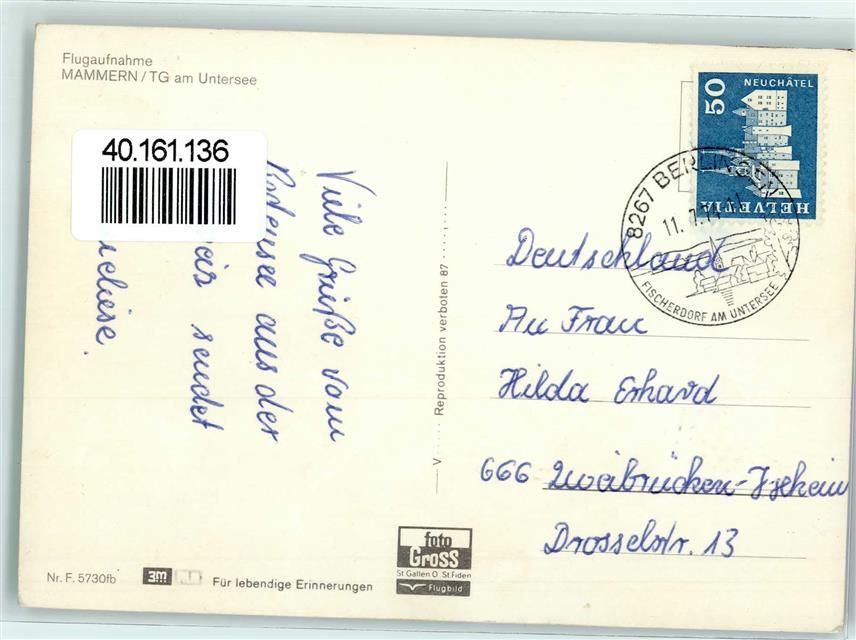 Flugaufnahme
MAMMERN / TG am Untersee
40.161.136
Viele Grüße vom
Bodensee aus der
sendet
50 NEUCHÂTEL
HELVETIA
8267 BERLINGEN
11. 7.
FISCHERDORF AM UNTERSEE
Deutschland
An Frau
Hilda Erhard
666 Zweibrücken-Ixheim
Drosselstr. 13
V Reproduktion verboten 87
foto
Gross
St.Gallen O St.Fiden
Flugbild
Nr. F. 5730fb
3M
Für lebendige Erinnerungen